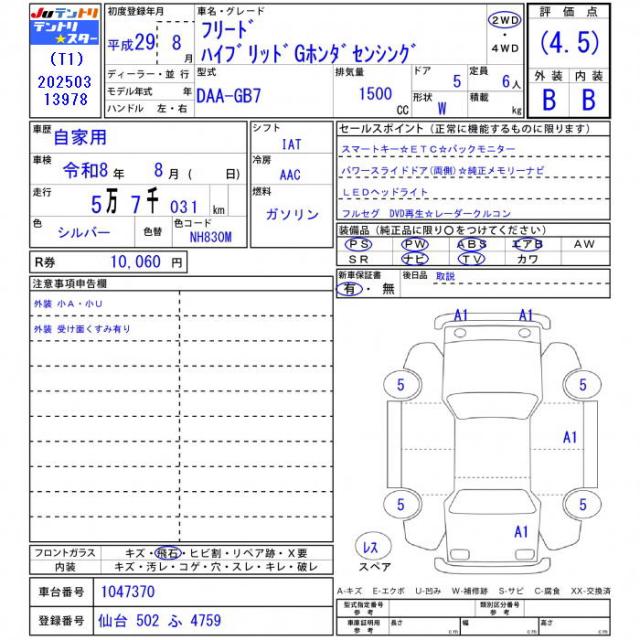 JUテントリ
テントリ
☆スター
(T1)
202503
13978
初度登録年月
平成29年 8月
ディーラー・並行
モデル年式 年
ハンドル 左・右
車名・グレード
フリード
ハイブリッドGホンダセンシング
2WD
・
4WD
型式
DAA-GB7
排気量
1500
cc
ドア 5
定員 6人
形状 W
積載 kg
評価点
(4.5)
外装 内装
B B
車歴
自家用
車検
令和8年 8月( 日)
走行
5万7千031km
色 シルバー
色替
色コード
NH830M
シフト
IAT
冷房
AAC
燃料
ガソリン
R券 10,060 円
セールスポイント(正常に機能するものに限ります)
スマートキー☆ETC☆バックモニター
パワースライドドア(両側)☆純正メモリーナビ
LEDヘッドライト
フルセグ DVD再生☆レーダークルコン
装備品(純正品に限り○をつけてください)
PS PW ABS エアB AW
SR ナビ TV カワ
新車保証書
有・無
後日品 取説
注意事項申告欄
外装 小A・小U
外装 受け面くすみ有り
A1 A1
5 5
A1
5 5
A1
レス
スペア
フロントガラス キズ・飛石・ヒビ割・リペア跡・X要
内装 キズ・汚レ・コゲ・穴・スレ・キレ・破レ
車台番号 1047370
登録番号 仙台 502 ふ 4759
A-キズ E-エクボ U-凹み W-補修跡 S-サビ C-腐食 XX-交換済
型式指定番号
参考
類別区分番号
参考
車庫証明用
参考
長さ cm
幅 cm
高さ cm